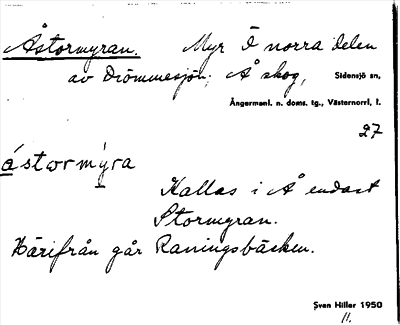 Åstormyran. Myr Ö norra delen
av Drömmesjön; Å skog, Sidensjö sn,
Ångermanl. n. doms. tg., Västernorrl. l.
27
åstormýra
Kallas i Å endast
Stormyran.
Härifrån går Raningsbäcken.
Sven Hiller 1950
11.